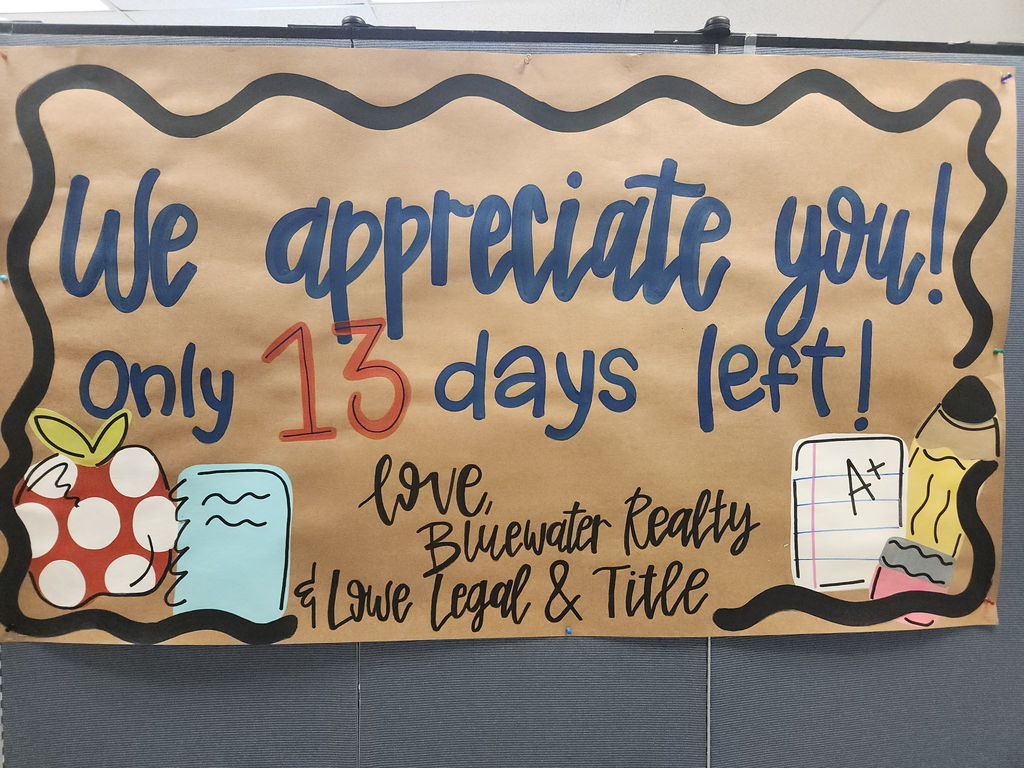 We appreciate you!
Only 13 days left!
love,
Bluewater Realty
& Lowe Legal & Title
A+